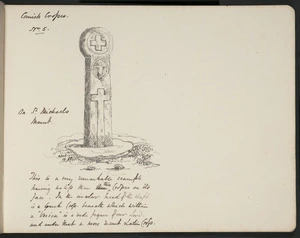 Cornish Crosses.
No 5.
On St Michaels
Mount.
This is a very remarkable example
having no less than three Crosses on its
face. In the circular head of the shaft
is a Greek Cross beneath which within
a "Vesica" is a rude figure of our Lord
and under that a more recent Latin Cross.